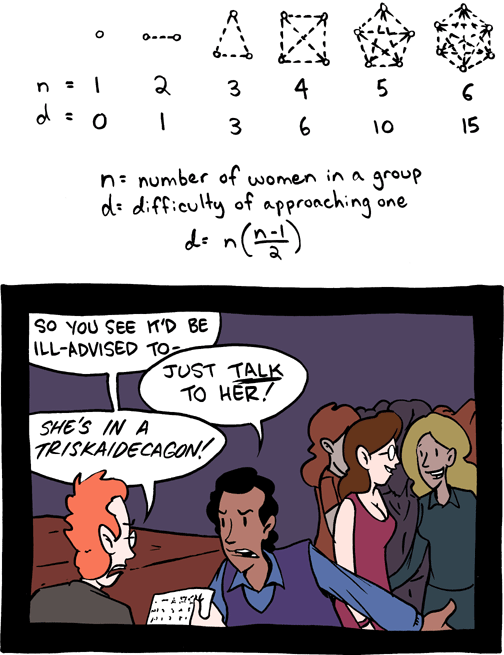 n = 1 2 3 4 5 6
d = 0 1 3 6 10 15
n = number of women in a group
d = difficulty of approaching one
d = n(n-1/2)
SO YOU SEE IT'D BE
ILL-ADVISED TO-
JUST TALK
TO HER!
SHE'S IN A
TRISKAIDECAGON!